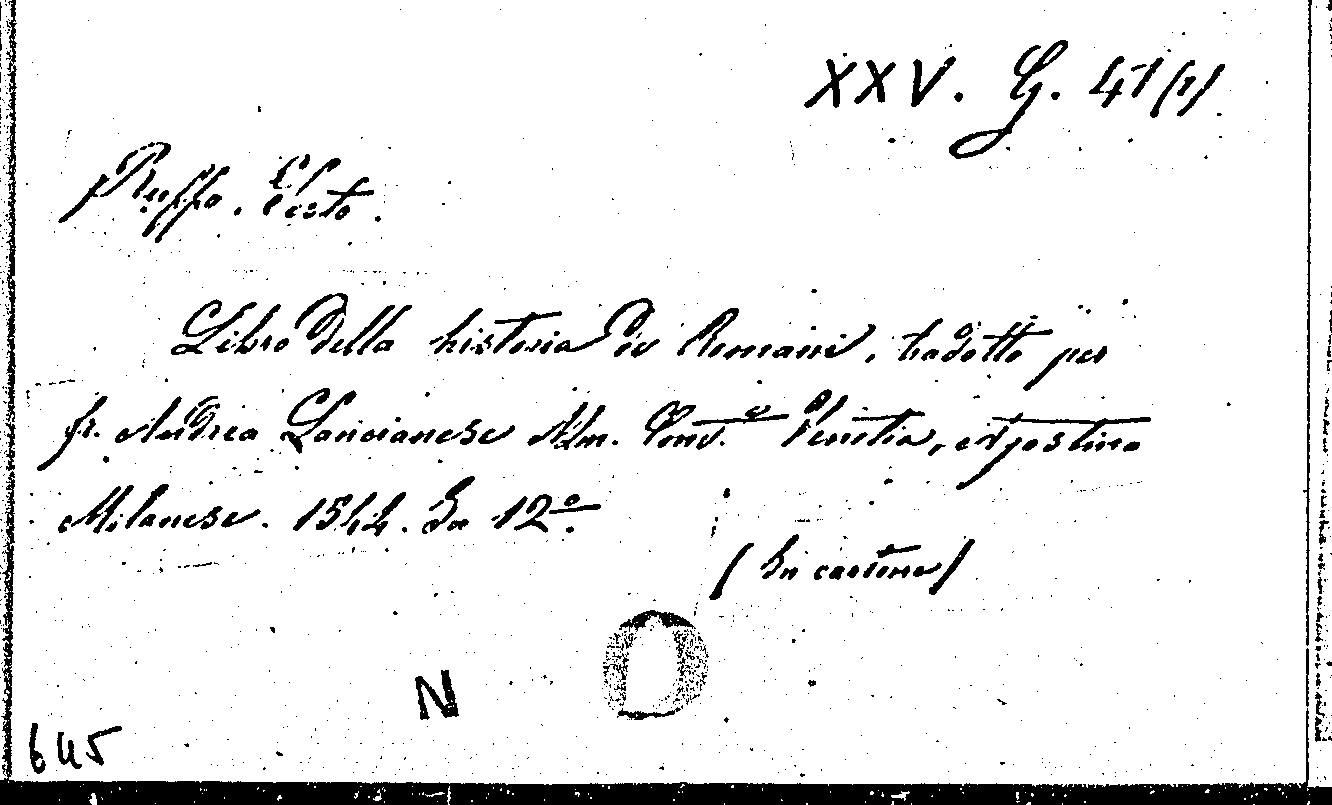 XXV. G. 41(1)
Ruffo. Festo.
Libro della historia de Romani, tradotto per
fr. Andrea Lancianese Min. Conv.º Venetia, Agostino
Milanese. 1544. In 12º.
(In cartone)
N
645